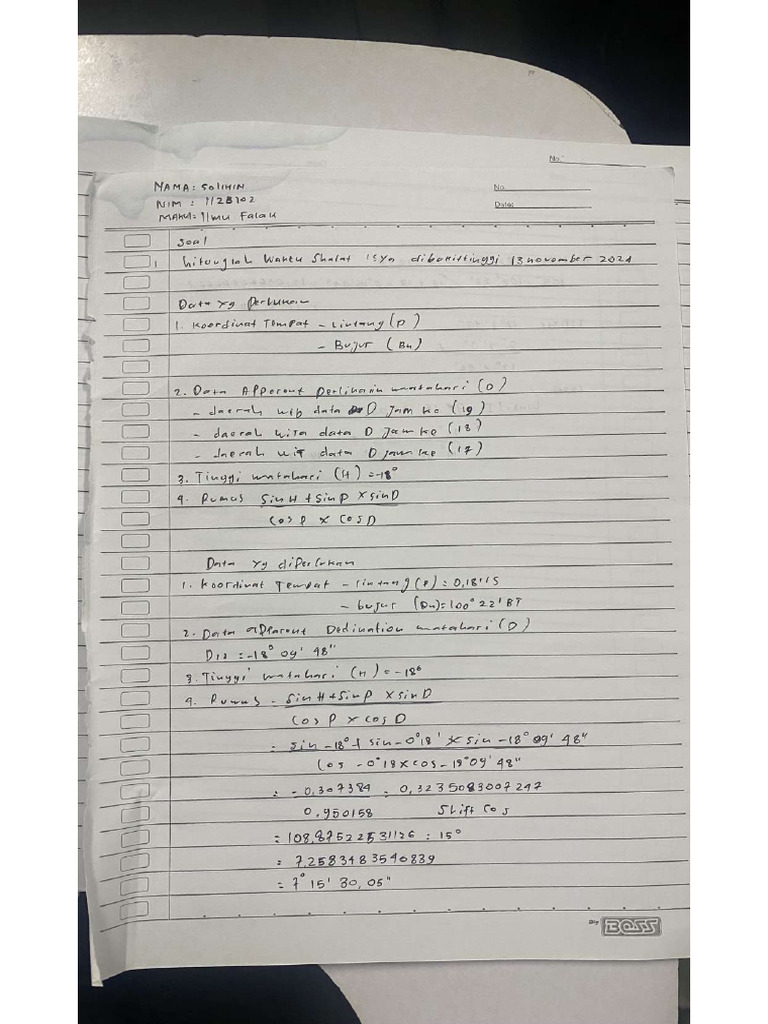 No:
NAMA: SOLIHIN
No
NIM : 1123102
Date:
MAKUL: Ilmu Falak
Soal
1. hitunglah Waktu Shalat isya dibukittinggi 13 november 2024
Data yg Perlukan
1. Koordinat Tempat - Lintang (P)
- Bujur (Bu)
2. Data Apparent matahari (D)
- daerah wib data D Jam ke (19)
- daerah wita data D Jam ke (18)
- daerah wit data D jam ke (17)
3. Tinggi matahari (H) = -18°
4. Rumus Sin H + Sin P x Sin D
Cos P x Cos D
Data yg diperlukan
1. Koordinat Tempat - lintang (P) = 0,18' LS
- bujur (Bu) = 100° 22' BT
2. Data apparent Declination matahari (D)
D12 = -18° 09' 48"
3. Tinggi matahari (H) = -18°
4. Rumus - Sin H + Sin P x Sin D
Cos P x Cos D
= Sin -18° + Sin -0°18' x Sin -18° 09' 48"
Cos -0°18 x Cos -18°09' 48"
= -0,307384 = 0,3235083007247
0.950158 Shift Cos
= 108,87522531126 : 15°
= 7.2583483540839
= 7° 15' 30,05"
By BOSS